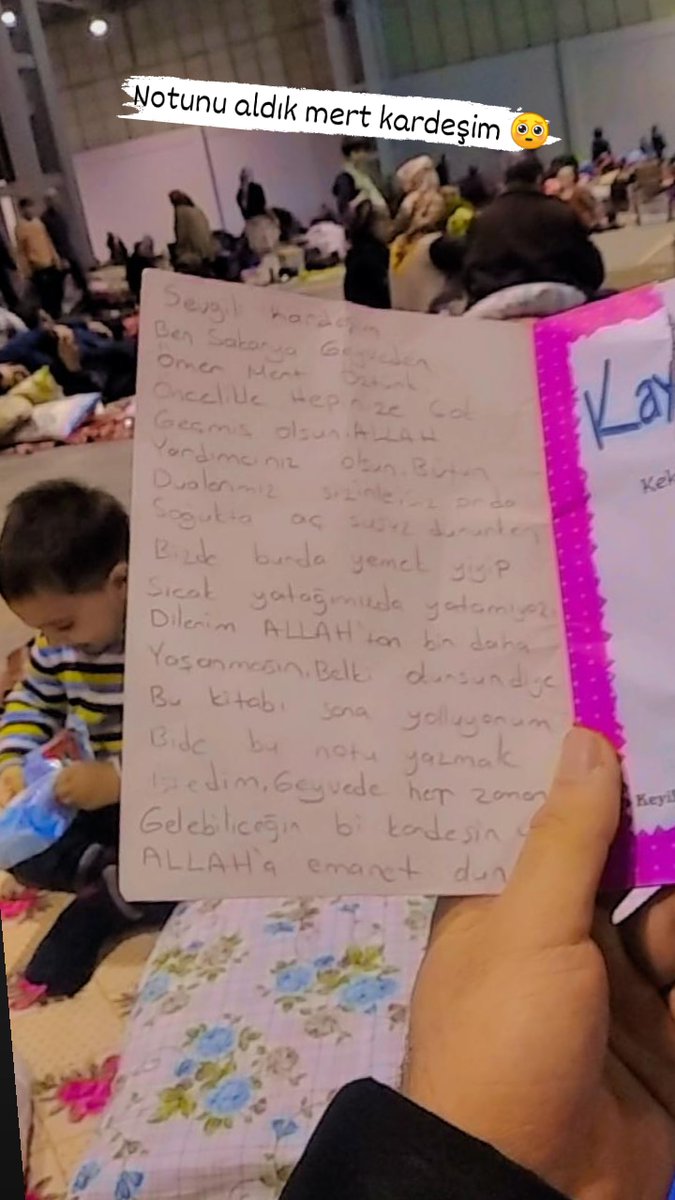 Notunu aldık mert kardeşim 🥺
Sevgili kardeşim
Ben Sakarya Geyveden
Ömer Mert Öztürk
Öncelikle Hepinize Çok
Geçmiş olsun. ALLAH
Yardımcınız olsun. Bütün
Dualerimiz sizinleriniz orda
Soğukta aç susuz dururken
Bizde burda yemek yiyip
Sıcak yatağımızda yatamıyoz.
Dilerim ALLAH'tan bin daha
Yaşanmasın. Belki dursun diye
Bu kitabı sana yolluyorum
Bide bu notu yazmak
istedim. Geyvede her zaman
Gelebiliceğin bi kardeşin
ALLAH'a emanet
Kay
Kek
Keyi